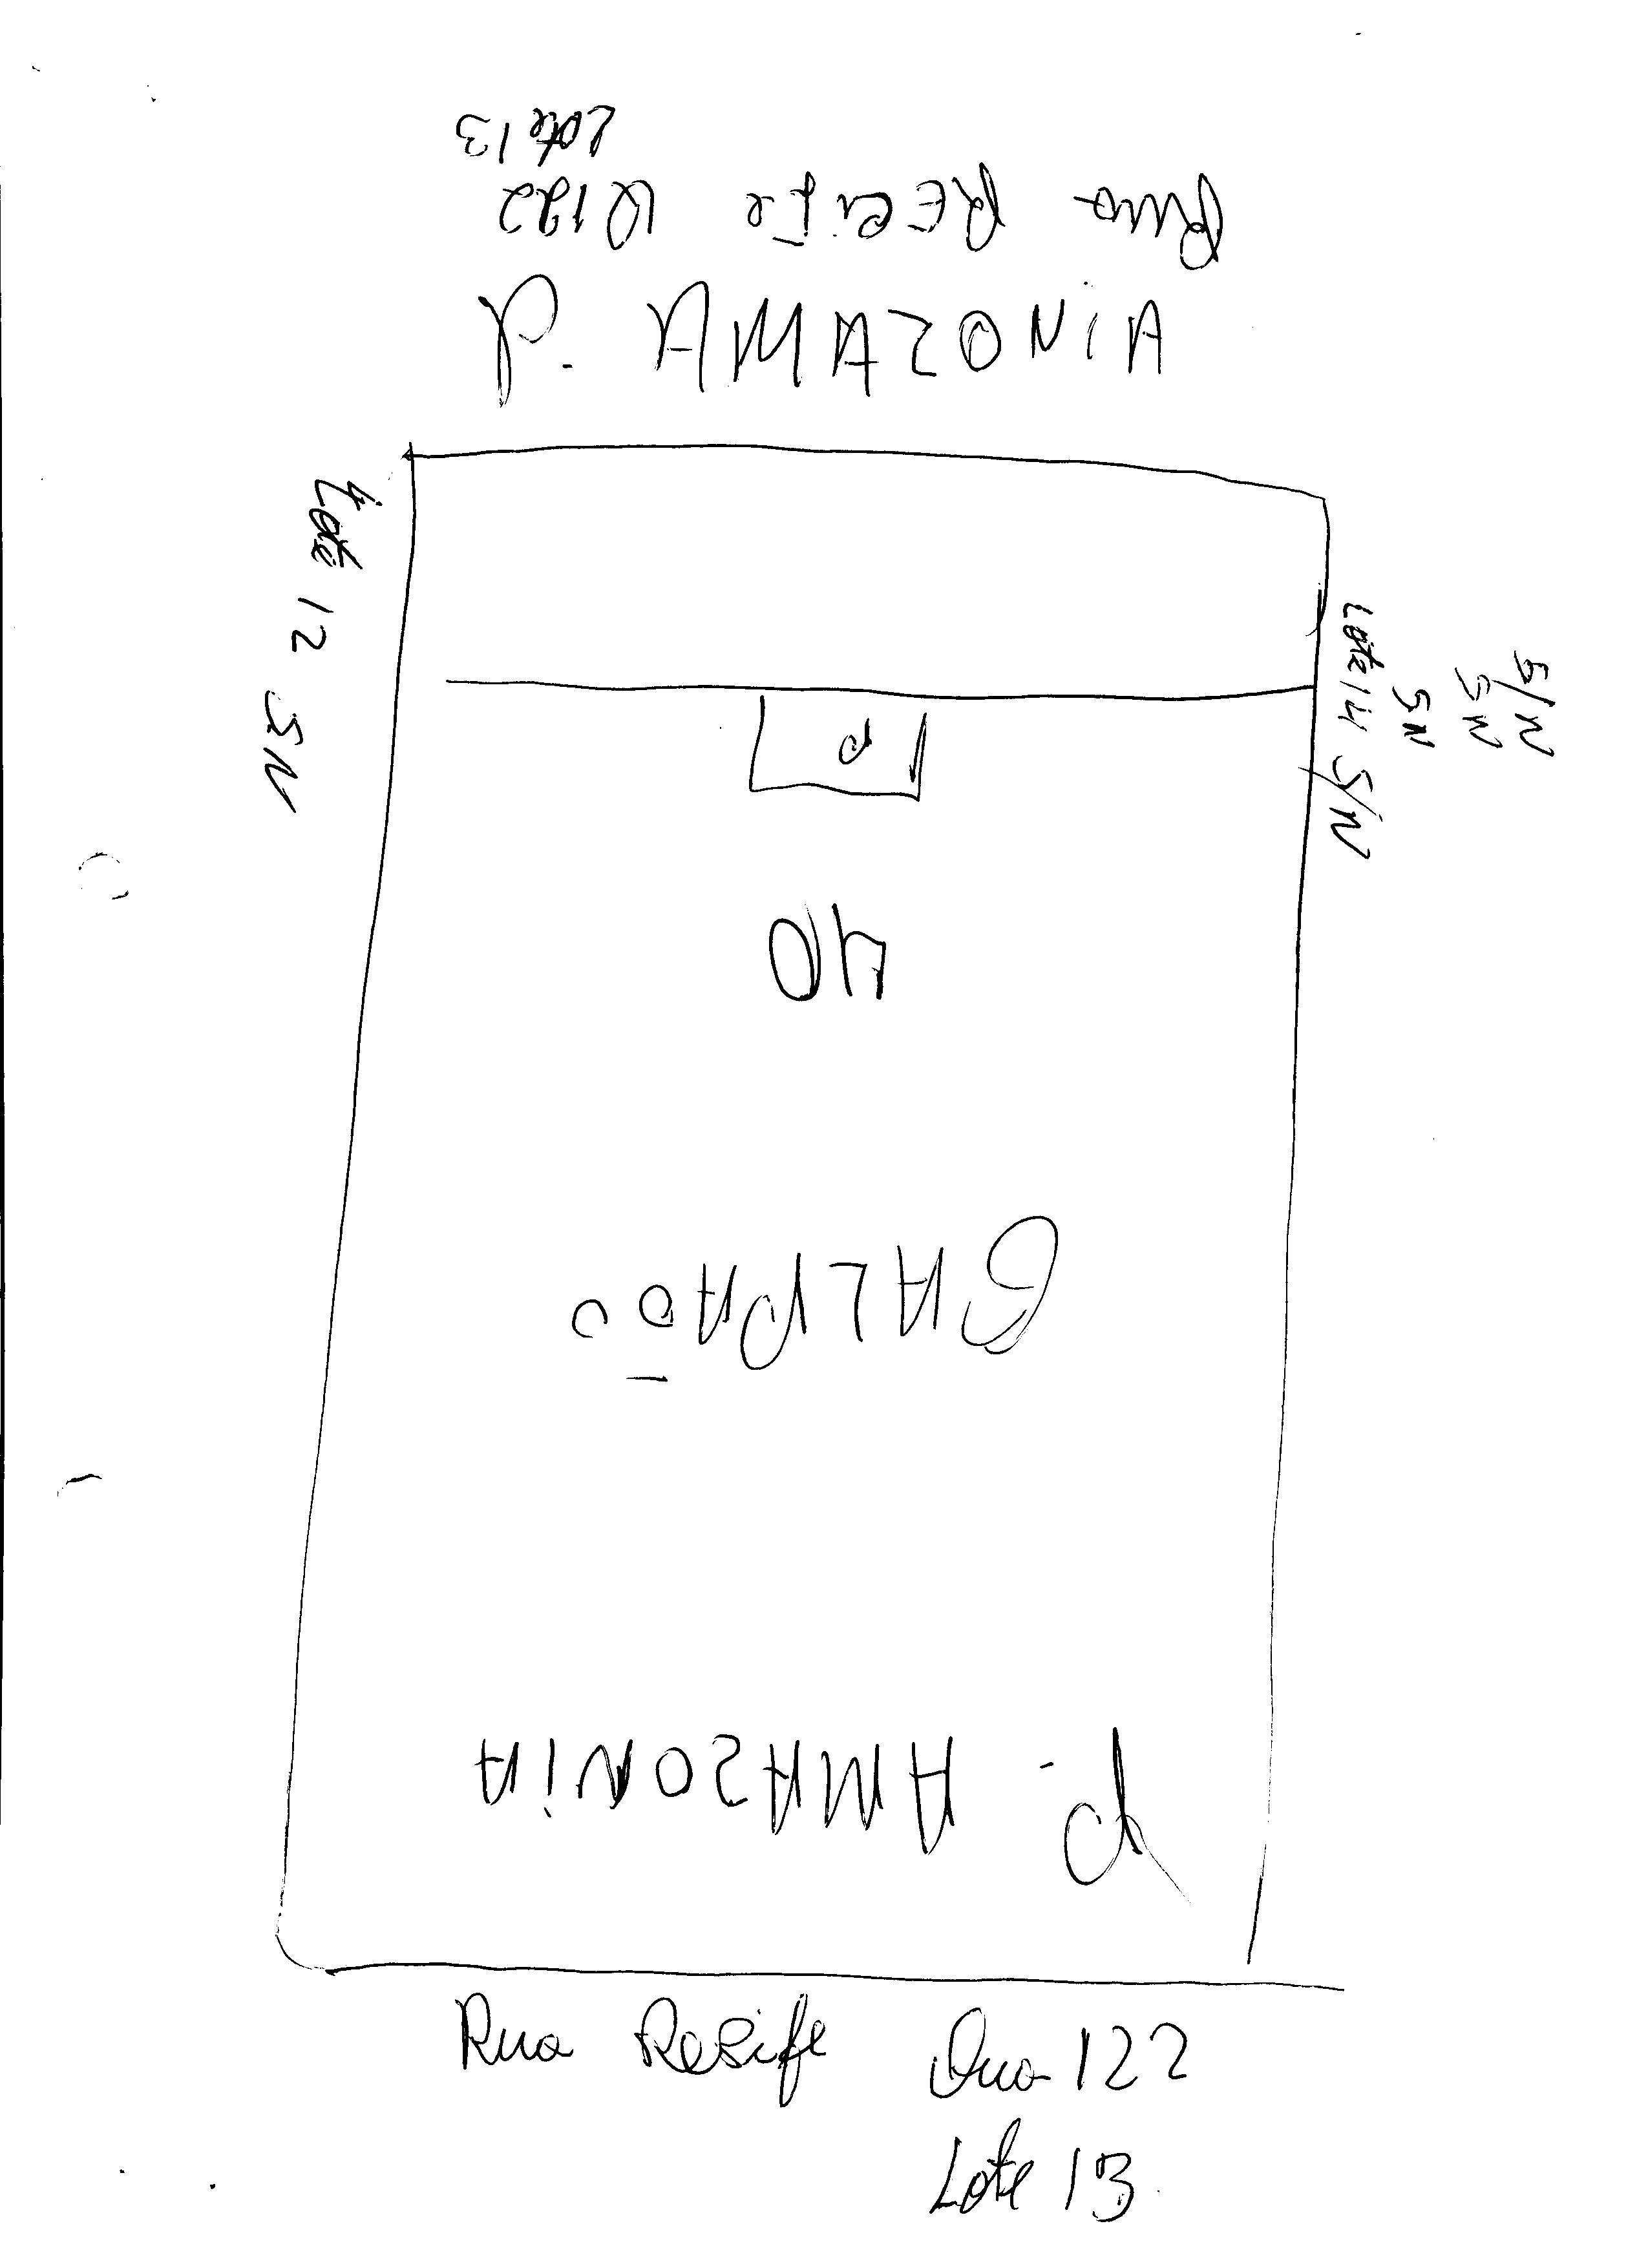 Lote 13
Rua RECife Q122
P. AMAZONiA
Lote 12 SN
Lote 14 S/N
SN
SN
S/N
P
40
GALPAõo
P. AMAZONiA
Rua Resife Qua 122
Lote 13